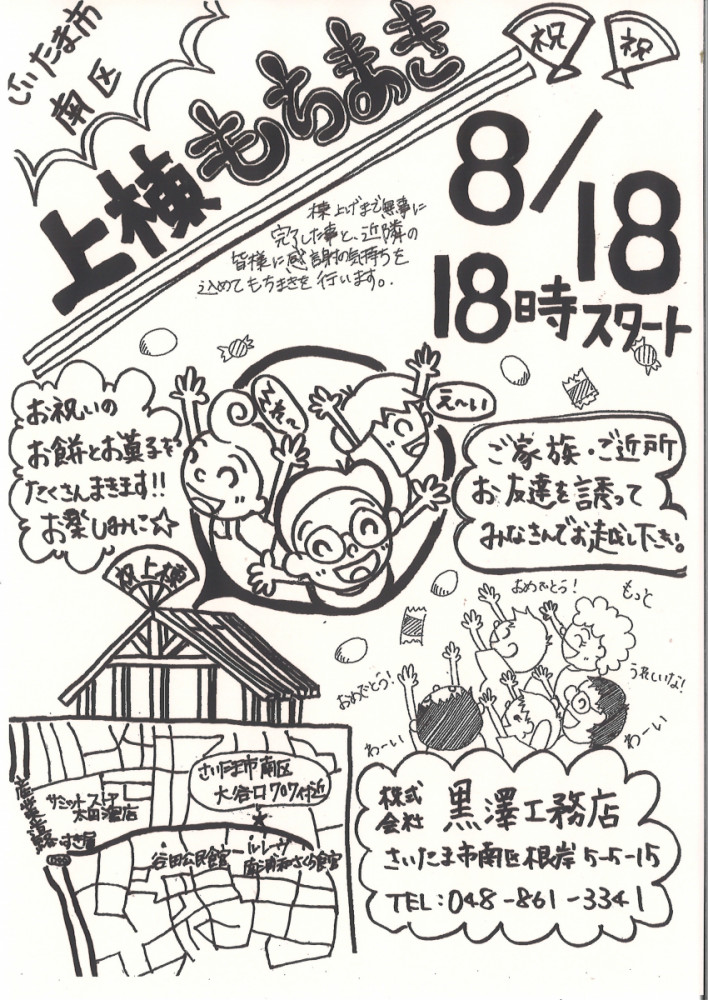 さいたま市
南区
祝
祝
上棟もちまき
8/18
18時スタート
棟上げまで無事に
完了した事と、近隣の
皆様に感謝の気持ちを
込めてもちまきを行います。
お祝いの
お餅とお菓子を
たくさんまきます!!
お楽しみに☆
それっ
え〜い
ご家族・ご近所
お友達を誘って
みなさんでお越し下さい。
祝上棟
おめでとう!
もっと
おめでとう!
うれしいな!
わーい
わーい
さいたま市南区
大谷口707付近
産業道路
サミットストア
太田窪店
すき家
谷田公民館
南浦和さくら館
株式
会社
黒澤工務店
さいたま市南区根岸5-5-15
TEL:048-861-3341